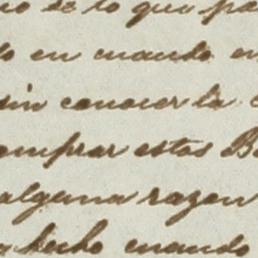 no se lo que pa
do en cuando en
sin conocer la
omprar estos B
alguna razon
hecho cuando